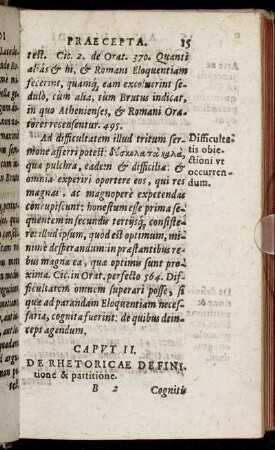 PRAECEPTA. 15
rest. Cic. 2. de Orat. 370. Quanti
aliàs & hi, & Romani Eloquentiam
fecerint, quamq́, eam excoluerint se-
dulò, cùm alia, tùm Brutus indicat,
in quo Athenienses, & Romani Ora-
tores recensentur. 495.
Ad difficultatem illud tritum ser-
mone afferri potest: δύσκολα τὰ καλὰ,
quæ pulchra, eadem & difficilia: &
omnia experiri oportere eos, qui res
magnas, ac magnopere expetendas
concupiscunt: honestum esse prima se-
quentem in secundis tertijsq́, consiste-
re: illud ipsum, quod est optimum, mi-
nimè desperandum: in præstantibus re-
bus magna ea, quæ optimis sunt pro-
xima. Cic. in Orat. perfecto 564. Dif-
ficultatem omnem superari posse, si
quæ ad parandam Eloquentiam neces-
saria, cognita fuerint: de quibus dein-
ceps agendum.
Difficulta-
tis obie-
ctioni vt
occurren-
dum.
CAPVT II.
DE RHETORICAE DEFINI-
tione & partitione.
B 2 Cognitis